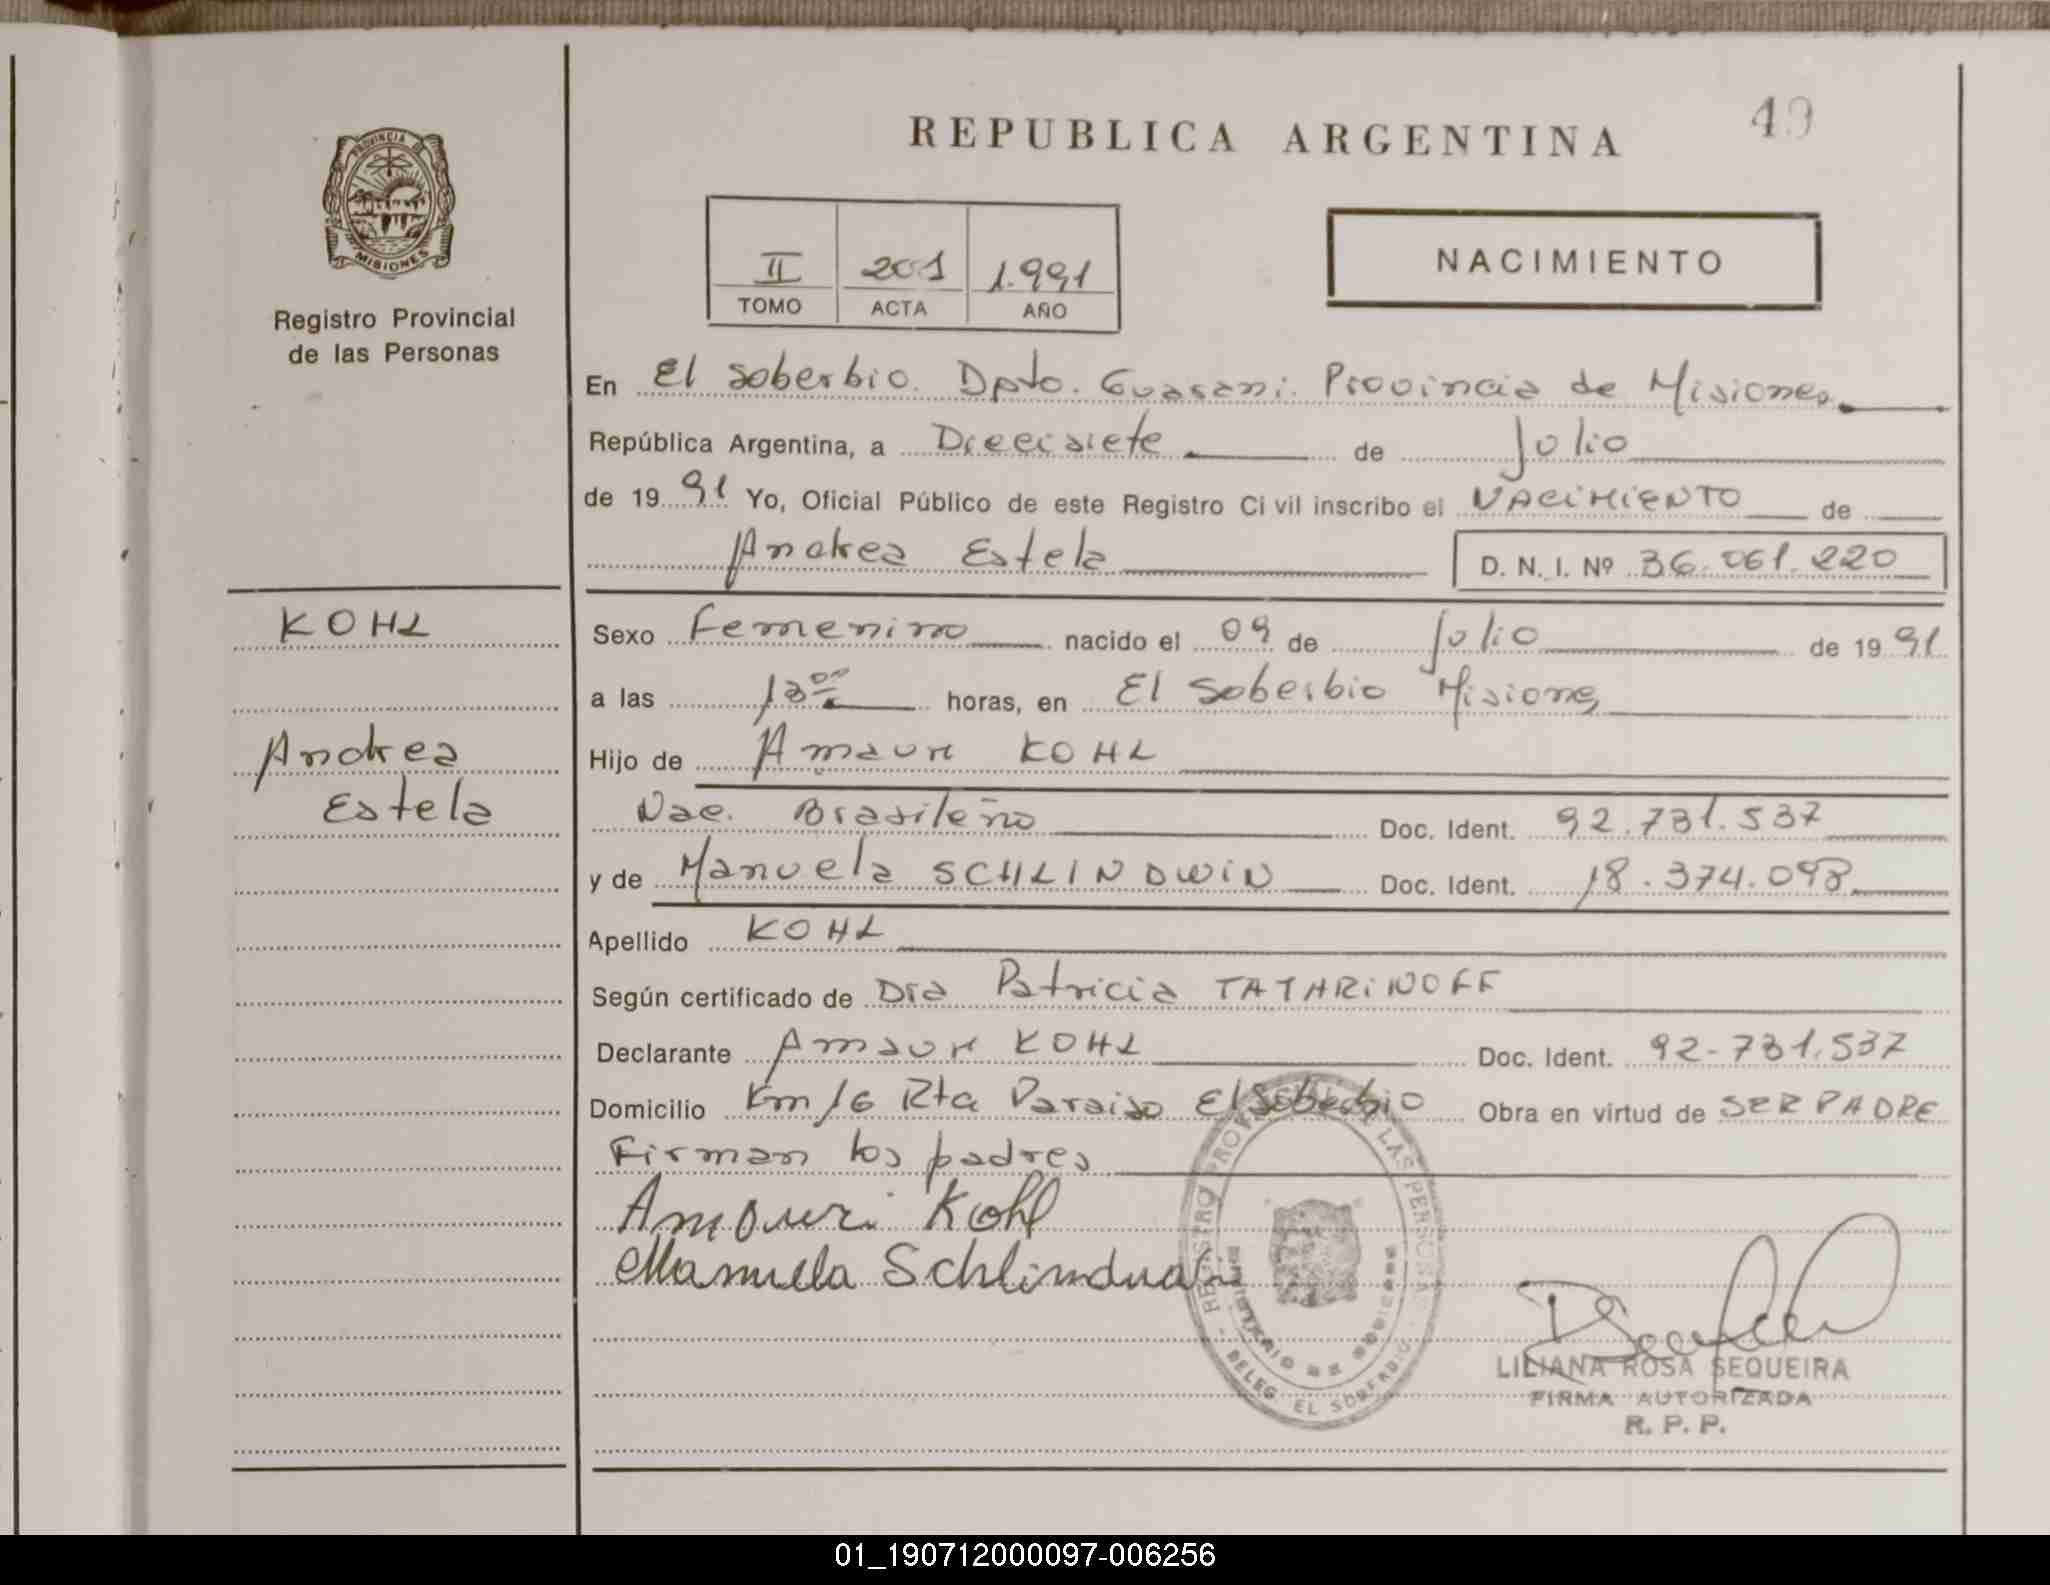 REPUBLICA ARGENTINA
49
PROVINCIA DE
MISIONES
Registro Provincial
de las Personas
II 201 1.991
TOMO ACTA AÑO
NACIMIENTO
En El Soberbio. Dpto. Guarani. Provincia de Misiones
República Argentina, a Diecisiete de Julio
de 19 91 Yo, Oficial Público de este Registro Civil inscribo el NACIMIENTO de
Andrea Estela D. N. I. Nº 36.061.220
KOHL
Andrea
Estela
Sexo Femenino nacido el 09 de Julio de 19 91
a las 13 00 horas, en El Soberbio Misiones
Hijo de Amauri KOHL
Nac. Brasileño Doc. Ident. 92.731.537
y de Manuela SCHLINDWIN Doc. Ident. 18.374.098
Apellido KOHL
Según certificado de Dra Patricia TATARINOFF
Declarante Amauri KOHL Doc. Ident. 92-731.537
Domicilio Km/6 Rta Paraiso El Soberbio Obra en virtud de SER PADRE
Firman los padres
Amauri Kohl
Manuela Schlindwain
REGISTRO PROVINCIAL DE LAS PERSONAS
DELEG. EL SOBERBIO
LILIANA ROSA SEQUEIRA
FIRMA AUTORIZADA
R. P. P.
01_190712000097-006256